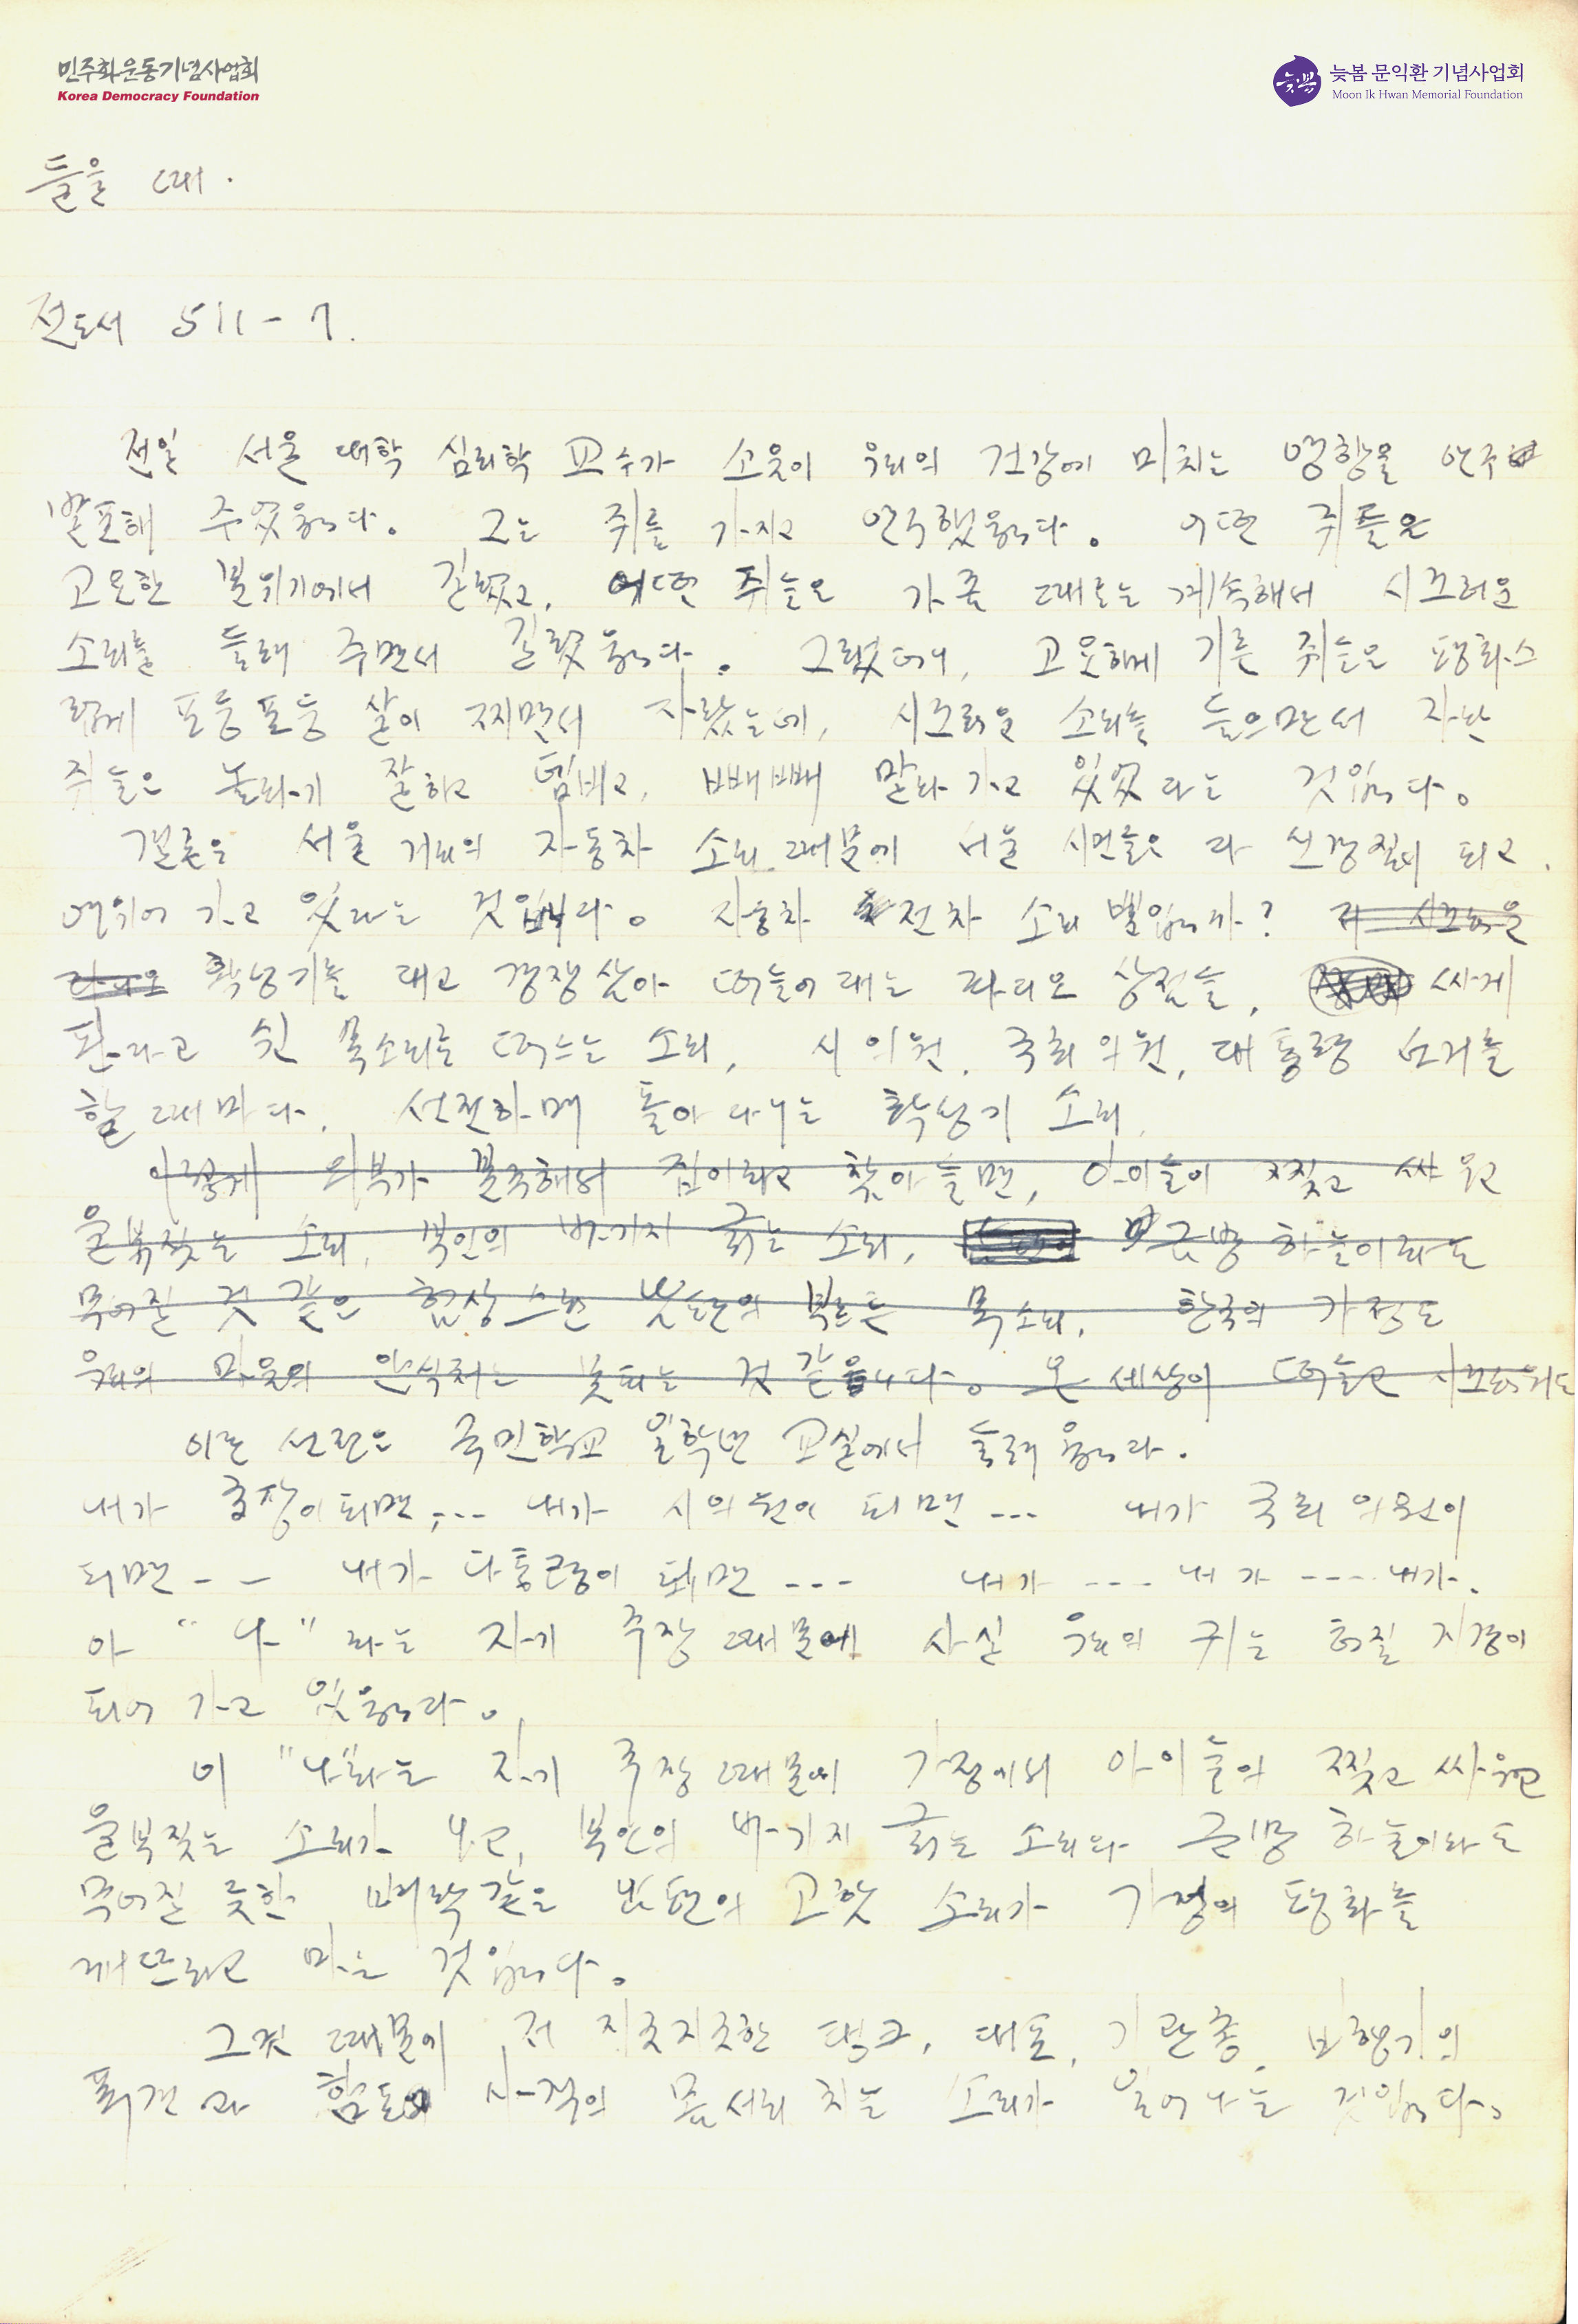 민주화운동기념사업회
Korea Democracy Foundation
늦봄
늦봄 문익환 기념사업회
Moon Ik Hwan Memorial Foundation
들을 때.
전도서 5 1-7.
전일 서울 대학 심리학 교수가 소음이 우리의 건강에 미치는 영향을 연구
발표해 주었읍니다. 그는 쥐를 가지고 연구했읍니다. 어떤 쥐들은
고요한 분위기에서 길렀고, 어떤 쥐들은 가끔 때로는 계속해서 시끄러운
소리를 들려 주면서 길렀읍니다. 그랬더니, 고요하게 기른 쥐들은 평화스
럽게 포동포동 살이 찌면서 자랐는데, 시끄러운 소리를 들으면서 자란
쥐들은 놀라기 잘하고 덤비고, 빼빼 말라 가고 있었다는 것입니다.
결론은 서울 거리의 자동차 소리 때문에 서울 시민들은 다 신경질이 되고,
여위어 가고 있다는 것입니다. 자동차 전차 소리 뿐입니까? 저 시끄러운
라디오 확성기를 대고 경쟁삼아 떠들어 대는 라디오 상점들, 싸게
판다고 쉰 목소리로 떠드는 소리, 시의원, 국회의원, 대통령 선거를
할 때마다, 선전하며 돌아다니는 확성기 소리,
이렇게 외부가 불국해서 집이라고 찾아들면, 아이들이 찢고 싸우고
울부짖는 소리, 부인의 바가지 긁는 소리, 금방 하늘이라도
무어질 것 같은 험상스런 남편의 부르튼 목소리, 한국의 가정도
우리의 마음의 안식처는 못되는 것 같습니다. 온 세상이 떠들고 시끄러워도
이런 선전은 국민학교 일학년 교실에서 들려옵니다.
내가 급장이 되면, --- 내가 시의원이 되면 --- 내가 국회의원이
되면 - - 내가 대통령이 되면 --- 내가 ---- 내가 ---- 내가.
아 "나" 라는 자기 주장 때문에 사실 우리의 귀는 터질 지경이
되어 가고 있읍니다.
이 "나"라는 자기 주장 때문에 가정에서 아이들의 찢고 싸우고
울부짖는 소리가 나고, 부인의 바가지 긁는 소리와 금방 하늘이라도
무어질 듯한 벼락같은 남편의 고함 소리가 가정의 평화를
깨뜨리고 마는 것입니다.
그것 때문에 저 지긋지긋한 탱크, 대포, 기관총, 비행기의
폭격과 함포 사격의 몸서리 치는 소리가 일어나는 것입니다.